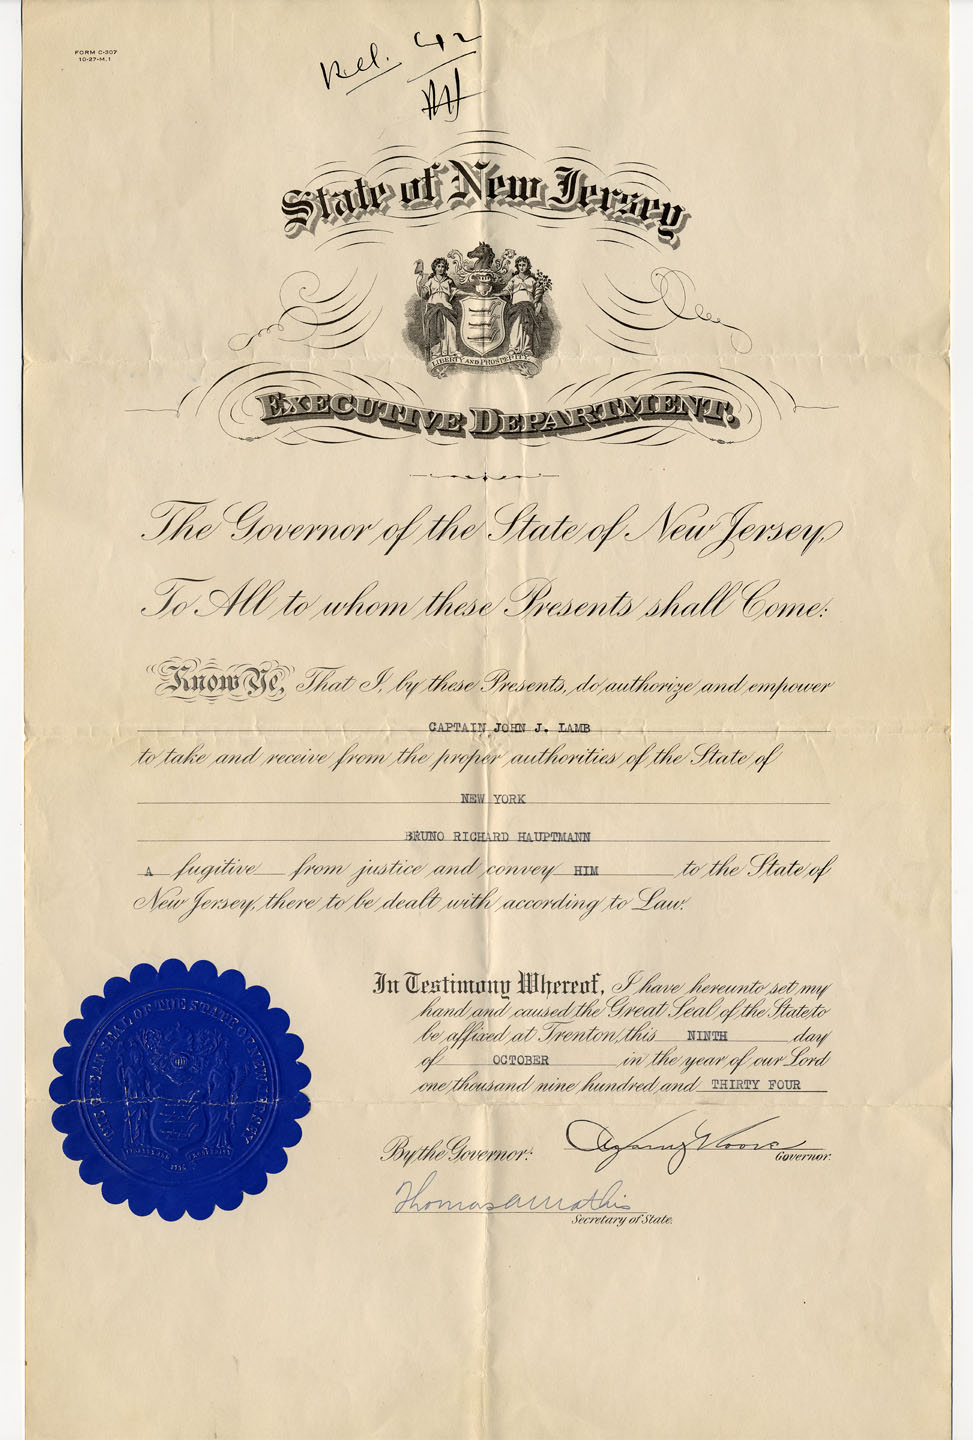 FORM C-307
10-27-M.1
Rec. 42
State of New Jersey
LIBERTY AND PROSPERITY
EXECUTIVE DEPARTMENT.
The Governor of the State of New Jersey,
To All to whom these Presents shall Come:
Know Ye, That I, by these Presents, do authorize and empower
CAPTAIN JOHN J. LAMB
to take and receive from the proper authorities of the State of
NEW YORK
BRUNO RICHARD HAUPTMANN
A fugitive from justice and convey HIM to the State of
New Jersey, there to be dealt with according to Law.
In Testimony Whereof, I have hereunto set my
hand and caused the Great Seal of the State to
be affixed at Trenton, this NINTH day
of OCTOBER in the year of our Lord
one thousand nine hundred and THIRTY FOUR
THE GREAT SEAL OF THE STATE OF NEW JERSEY
By the Governor:
A Harry Moore
Governor.
Thomas A Mathis
Secretary of State.